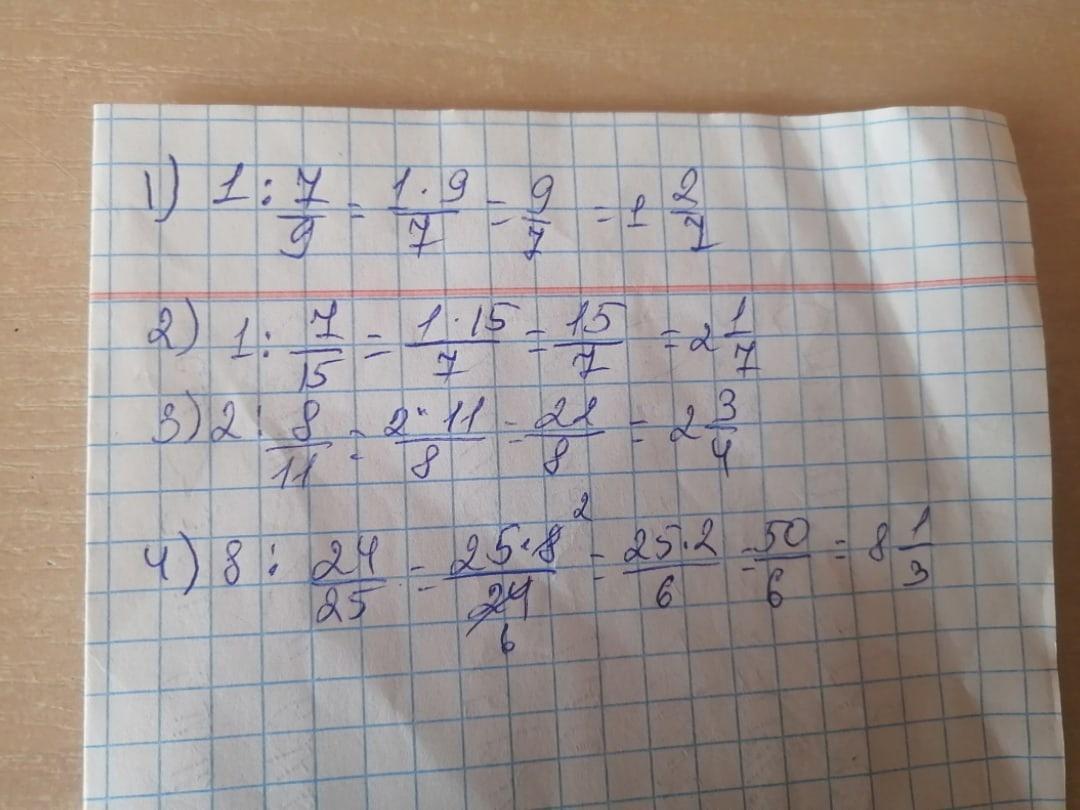 1) 1 : 7/9 = 1 · 9/7 = 9/7 = 1 2/7
2) 1 : 7/15 = 1 · 15/7 = 15/7 = 2 1/7
3) 2 : 8/11 = 2 · 11/8 = 22/8 = 2 3/4
4) 8 : 24/25 = 25 · 8 2/24 6 = 25 · 2/6 = 50/6 = 8 1/3